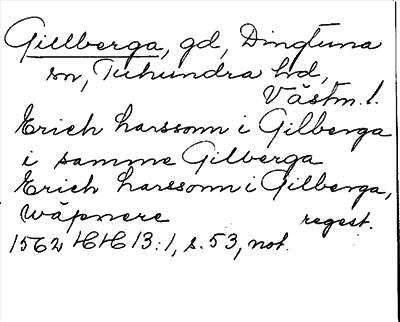 Gillberga, gd, Dingtuna
sn, Tuhundra hd,
Västm. l.
Erich Larssonn i Gilberga
i samme Gilberga
Erich Larssonn i Gilberga,
wäpnere regest.
1562 HH 13:1, s. 53, not.